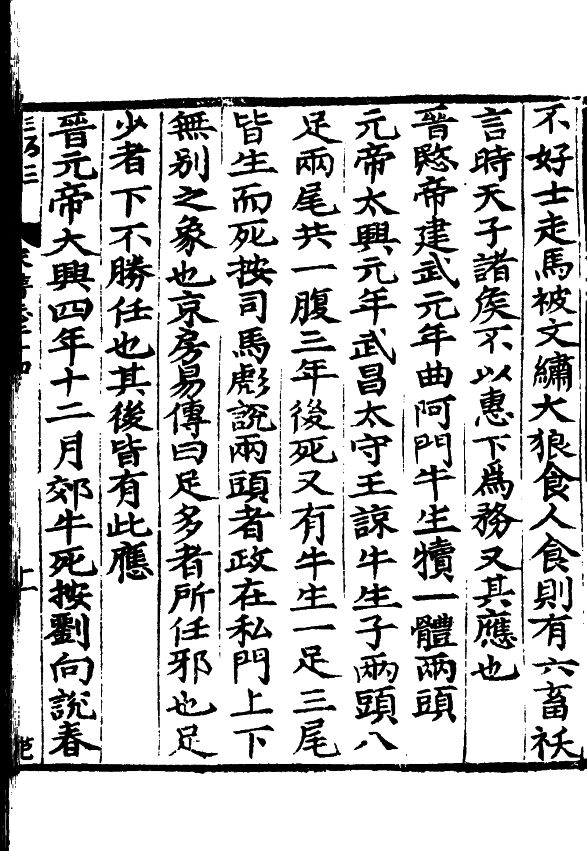 不好士走馬被文繡犬狼食人食則有六畜祅
言時天子諸矦不以惠下爲務又其應也
晉愍帝建武元年曲阿門牛生犢一體兩頭
元帝太興元年武昌太守王諒牛生子兩頭八
足兩尾共一腹三年後死又有牛生一足三尾
皆生而死按司馬彪說兩頭者政在私門上下
無别之象也京房易傳曰足多者所任邪也足
少者下不勝任也其後皆有此應
晉元帝大興四年十二月郊牛死按劉向說春